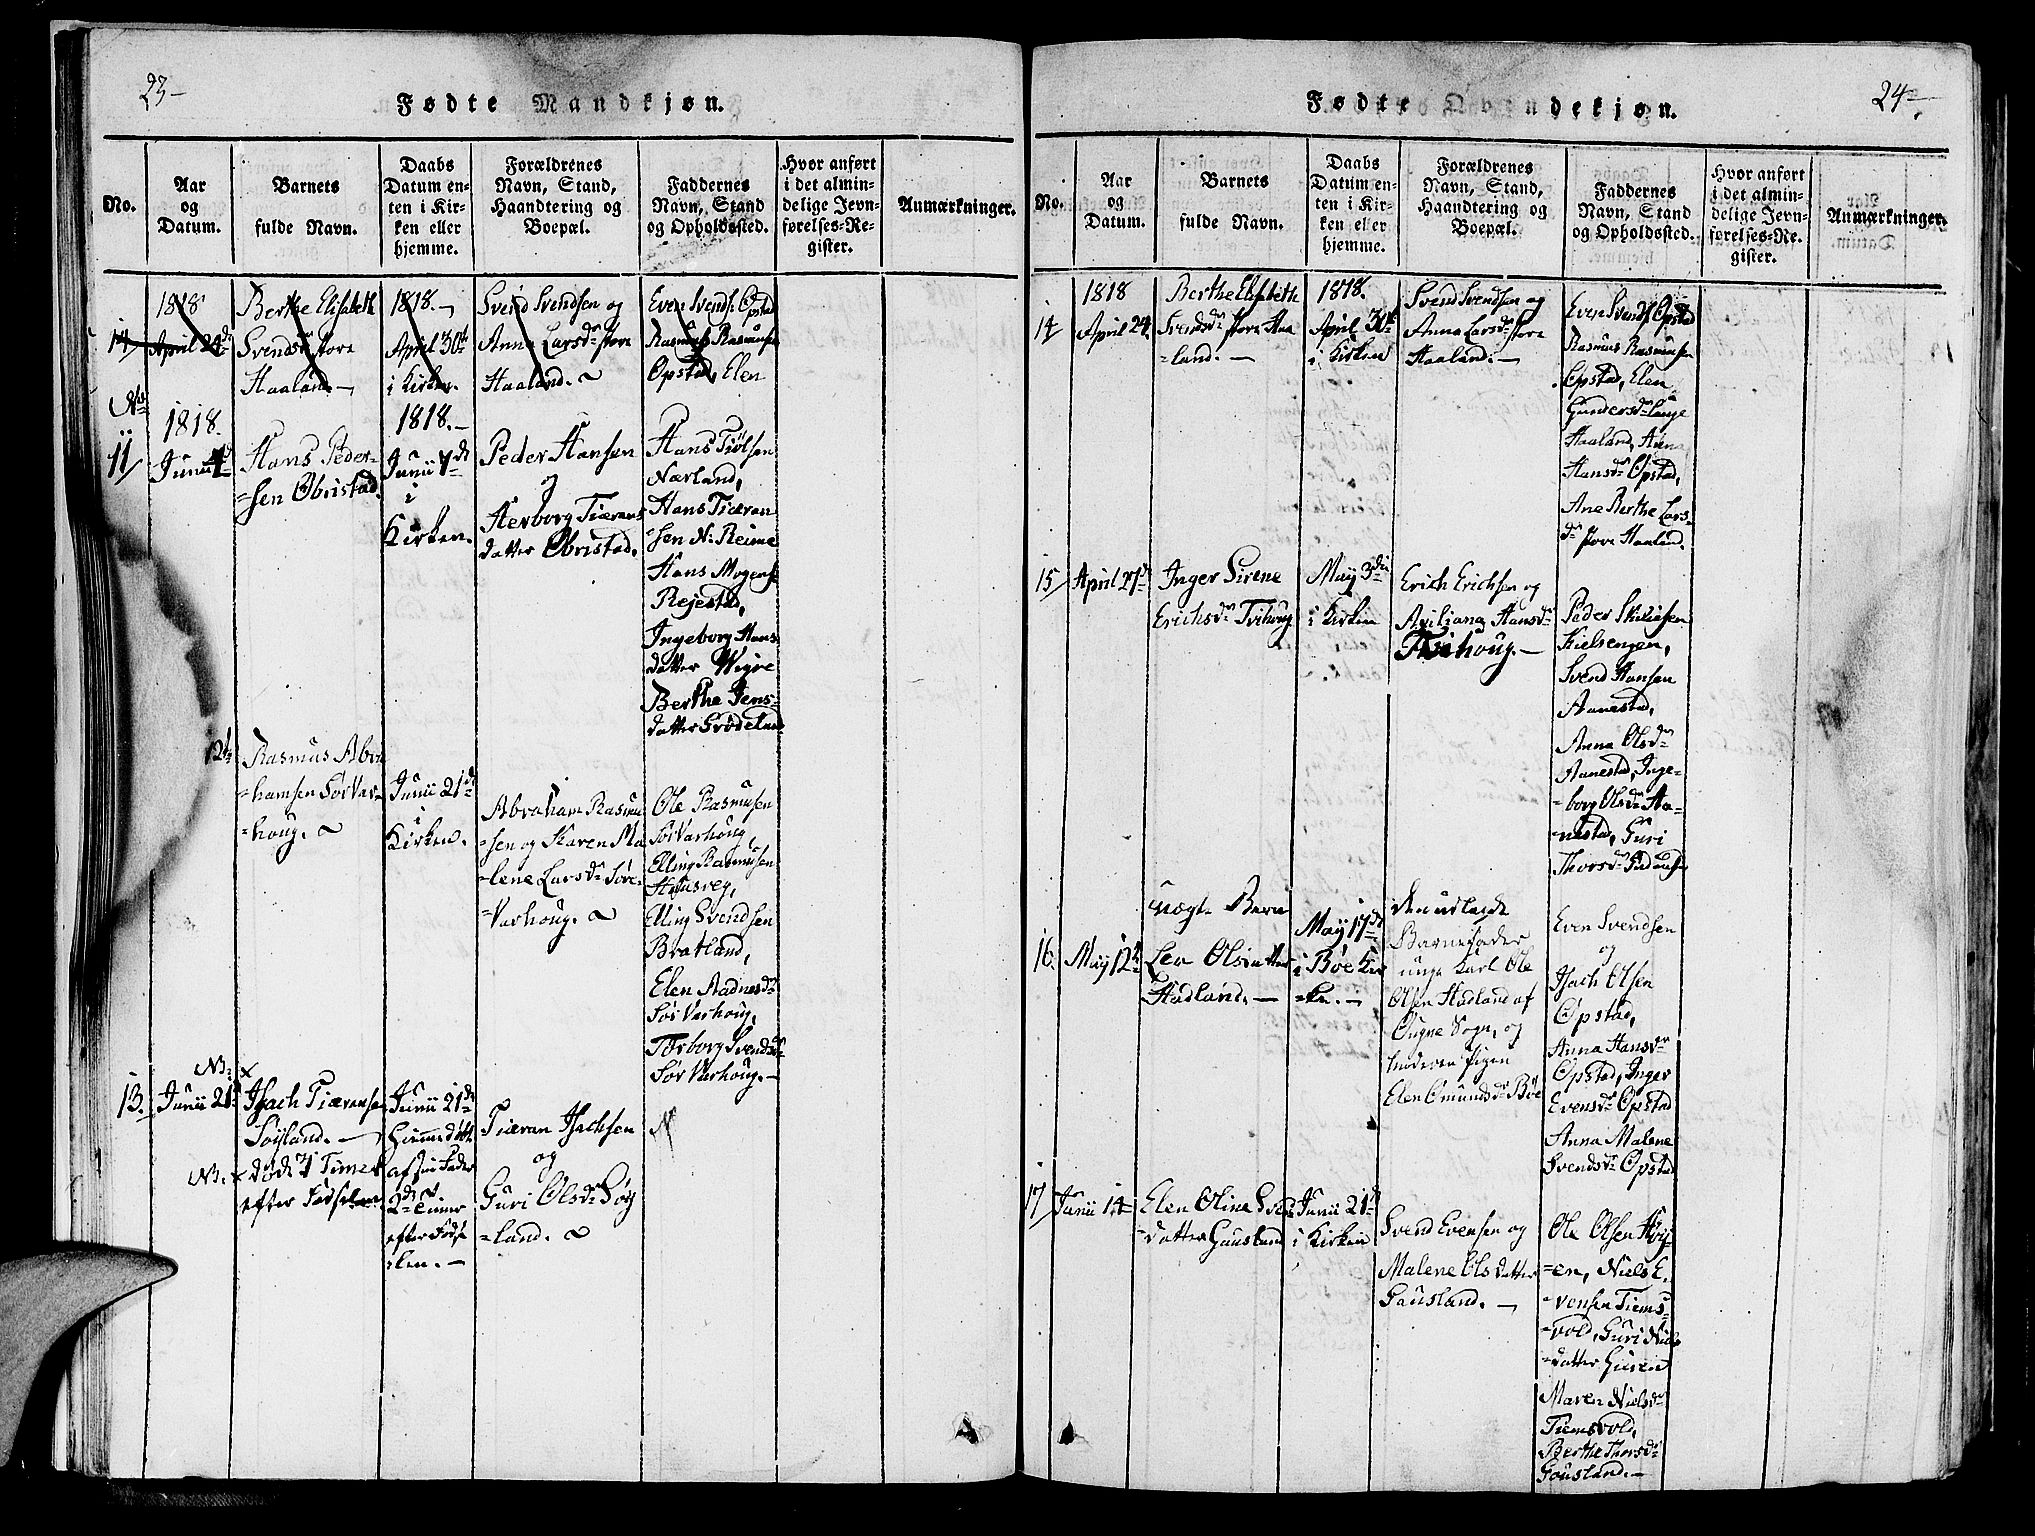 23-
Fødte Mandkjøn.
No.
Aar
og
Datum.
Barnets
fulde Navn.
Daabs
Datum en-
ten i Kir-
ken eller
hjemme.
Forældrenes
Navn, Stand,
Haandtering og
Boepæl.
Faddernes
Navn, Stand
og Opholdssted.
Hvor anført
i det almin-
delige Jevn-
førelses-Re-
gister.
Anmærkninger.
14
1818
April 24de
Berthe Elisabeth
Svendsdr store
Haaland.-
1818.-
April 30te
i Kirken.
Svend Svendsen og
Anna Larsdr store
Haaland.
Even Svends. Opstad
Rasmus Rasmusen
Opstad, Elen
No
11
1818.
Junii 4de
Hans Peder-
=sen Obristad.
1818.-
Junii 7de
i
Kirken.
Peder Hansen
og
Herborg Tiærans
datter Obristad.
Hans Tiølsen
Nærland,
Hans Tiæran
=sen N. Reime
Hans Mogens.
Rejestad,
Ingeborg Hans
datter Wigre
Berthe Jens-
datter Grødeland
12
Rasmus Abra
=hamsen Sør Var-
=houg.
Junii 21de
i
Kirken.
Abraham Rasmu
=sen og Karen Ma
=lene Larsdr Søre-
=Varhoug.
Ole Rasmusen
Sør Varhoug,
Elling Rasmusen
Husveg,
Elling Svendsen
Bratland,
Elen Aadnesdr
Sør Varhoug,
Torborg Svendsdr
Sør Varhoug.-
NB. x
13.
Junii 21de
Isach Tiæransen
Søyland.-
NB. x døde 7 Timer
efter Fødselen
Junii 21de
hiemmedøbt
af sin Fader
2de Timer
efter Fødse
=len.-
Tiæran Isachsen
og
Guri Olsdr Søy
=land.
24-
Fødte Qvindekjøn.
No.
Aar
og
Datum.
Barnets
fulde Navn.
Daabs
Datum en-
ten i Kir-
ken eller
hjemme.
Forældrenes
Navn, Stand,
Haandtering og
Boepæl.
Faddernes
Navn, Stand
og Opholdssted.
Hvor anført
i det almin-
delige Jevn-
førelses-Re-
gister.
Anmærkninger.
14
1818
April 24.
Berthe Elisabeth
Svendsdr store Haa
=land.-
1818.
April 30te
i Kirken
Svend Svendsen og
Anna Larsdr store
Haaland.-
Even Svends. Opstad
Rasmus Rasmusen
Opstad, Elen
Gundersdr
Haaland, Anna
Hansdr Opstad,
Ane Berthe Lars-
dr store Haaland.
15
April 27de
Inger Sirene
Erichsdr Tvihoug
May 3die
i Kirken
Erich Erichsen og
Aviliana Hansdr
Tvihoug.-
Peder
Kielsengen,
Svend Hansen
Aanestad,
Anna Olsdr
Aanestad, Inge-
=borg Olsdr Aa-
=nestad, Guri
Thorsdr
16.
May 12te
uægte Barn
Lea Olsdatter
Hadland.-
May 17de
i Bøe Kir
=ke.-
den udlagde
Barnefader
unge Karl Ole
Olsen Hadland af
Ougne Sogn, og
Moderen Pigen
Elen Omundsdr Bøe
Even Svendsen
og
Isach Olsen
Opstad,
Anna Hansdr
Opstad, Inger
Evensdr Opstad
Anna Malene
Svendsdr Opstad
17
Junii 14de
Elen Oline Svens
=datter Gausland
Junii 21de
i Kirken
Svend Evensen og
Malene Ols datter
Gausland.-
Ole Olsen Høy-
=en, Niels E.
=vensen Tiems-
=vold, Guri Niels
=datter Høien
Maren Nielsdr
Tiemsvold,
Berthe Thorsdr
Gousland.-